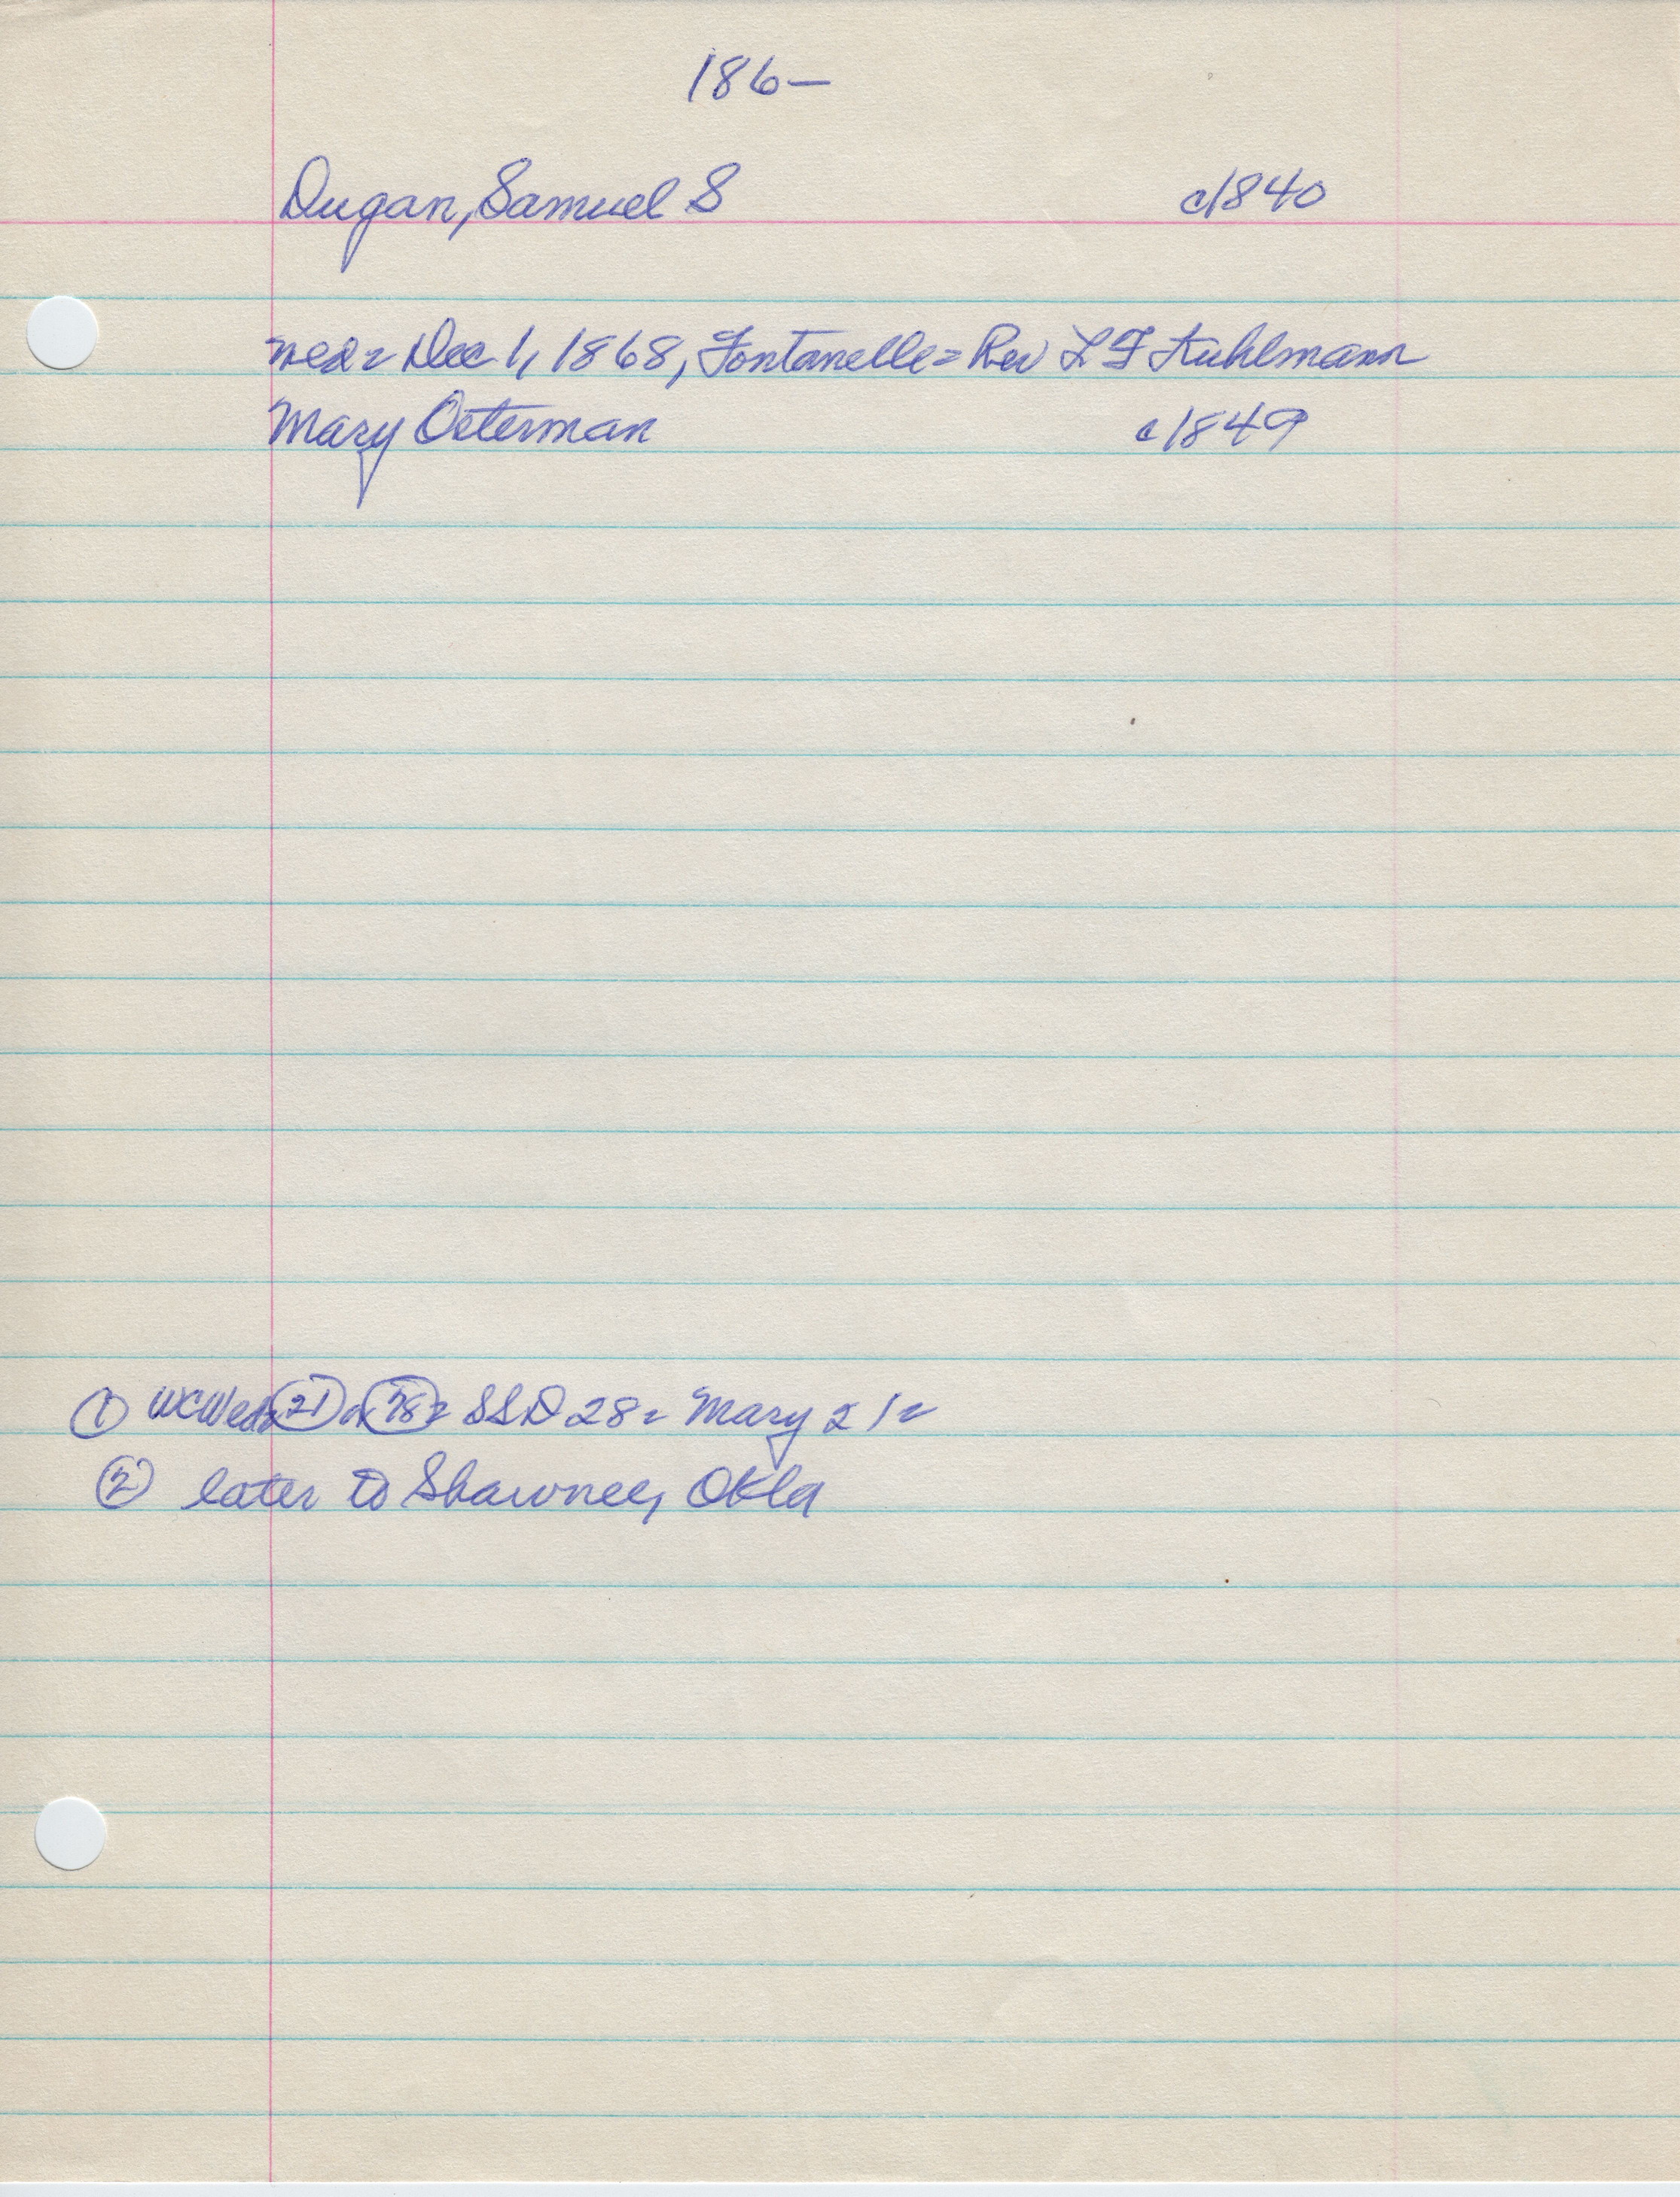 186—
Dugan, Samuel S c1840
wed= Dec 1, 1868, Fontanelle= Rev L F Kuhlmann
Mary Osterman c1849
① WCWed= 21 78= SSD 28= Mary 21=
② later to Shawnee, Okla